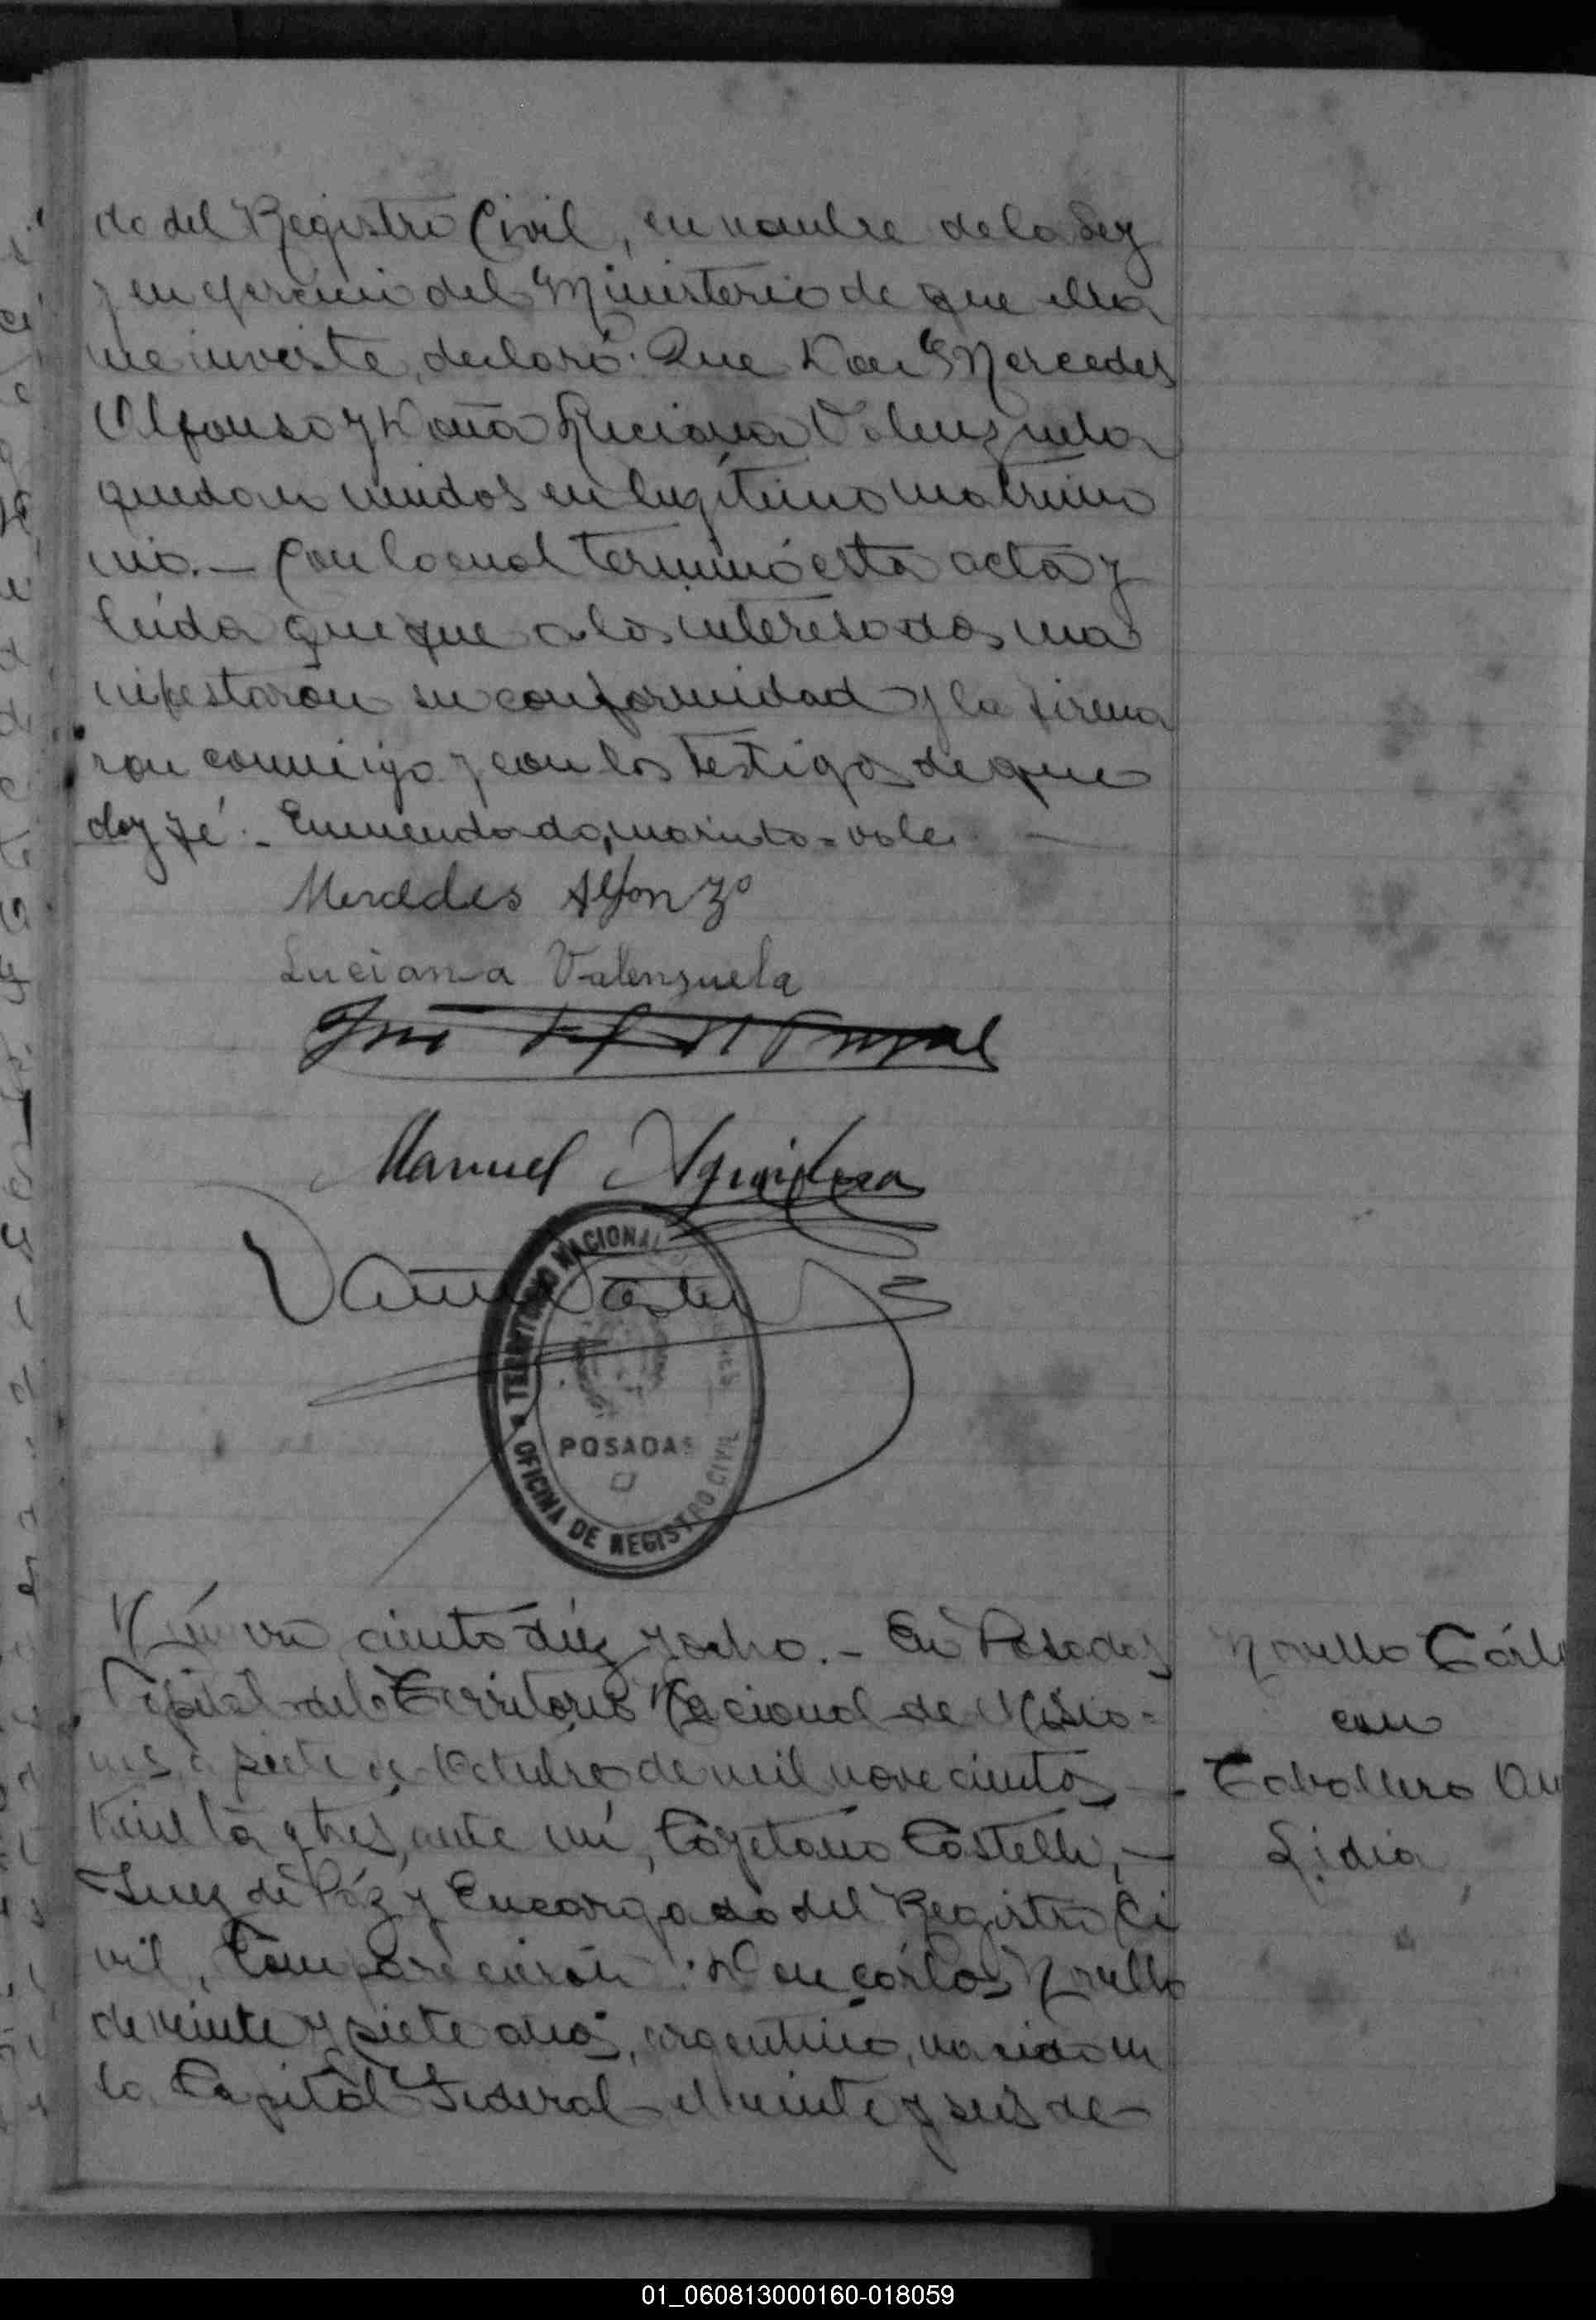 do del Registro Civil, en nombre de la Ley
y en ejercicio del Ministerio de que ella
me inviste, declaró: Que Don Mercedes
Alfonso y Doña Luciana Valenzuela
quedan unidos en legítimo matrimo
nio.— Con lo cual terminó esta acta y
leída que fue a los interesados ma
nifestaron su conformidad y la firma
ron conmigo y con los testigos de que
doy fé.- Enmendado, = vale. —
Mercedes Alfonzo
Luciana Valensuela
José
Manuel
TERRITORIO NACIONAL
POSADAS
OFICINA DE REGISTRO CIVIL
Número ciento diez y ocho.- En Posadas
Capital del Territorio Nacional de Misio-
nes, a siete de Octubre de mil novecientos
treinta y tres, ante mí, Cayetano Castelli, —
Juez de Páz y Encargado del Registro Ci
vil, Comparecieron: Don Cárlos Novello
de veinte y siete años, argentino, nacido en
la Capital Federal el veinte y seis de—
Novello Cárlo
con
Caballero
Lidia
01_060813000160-018059